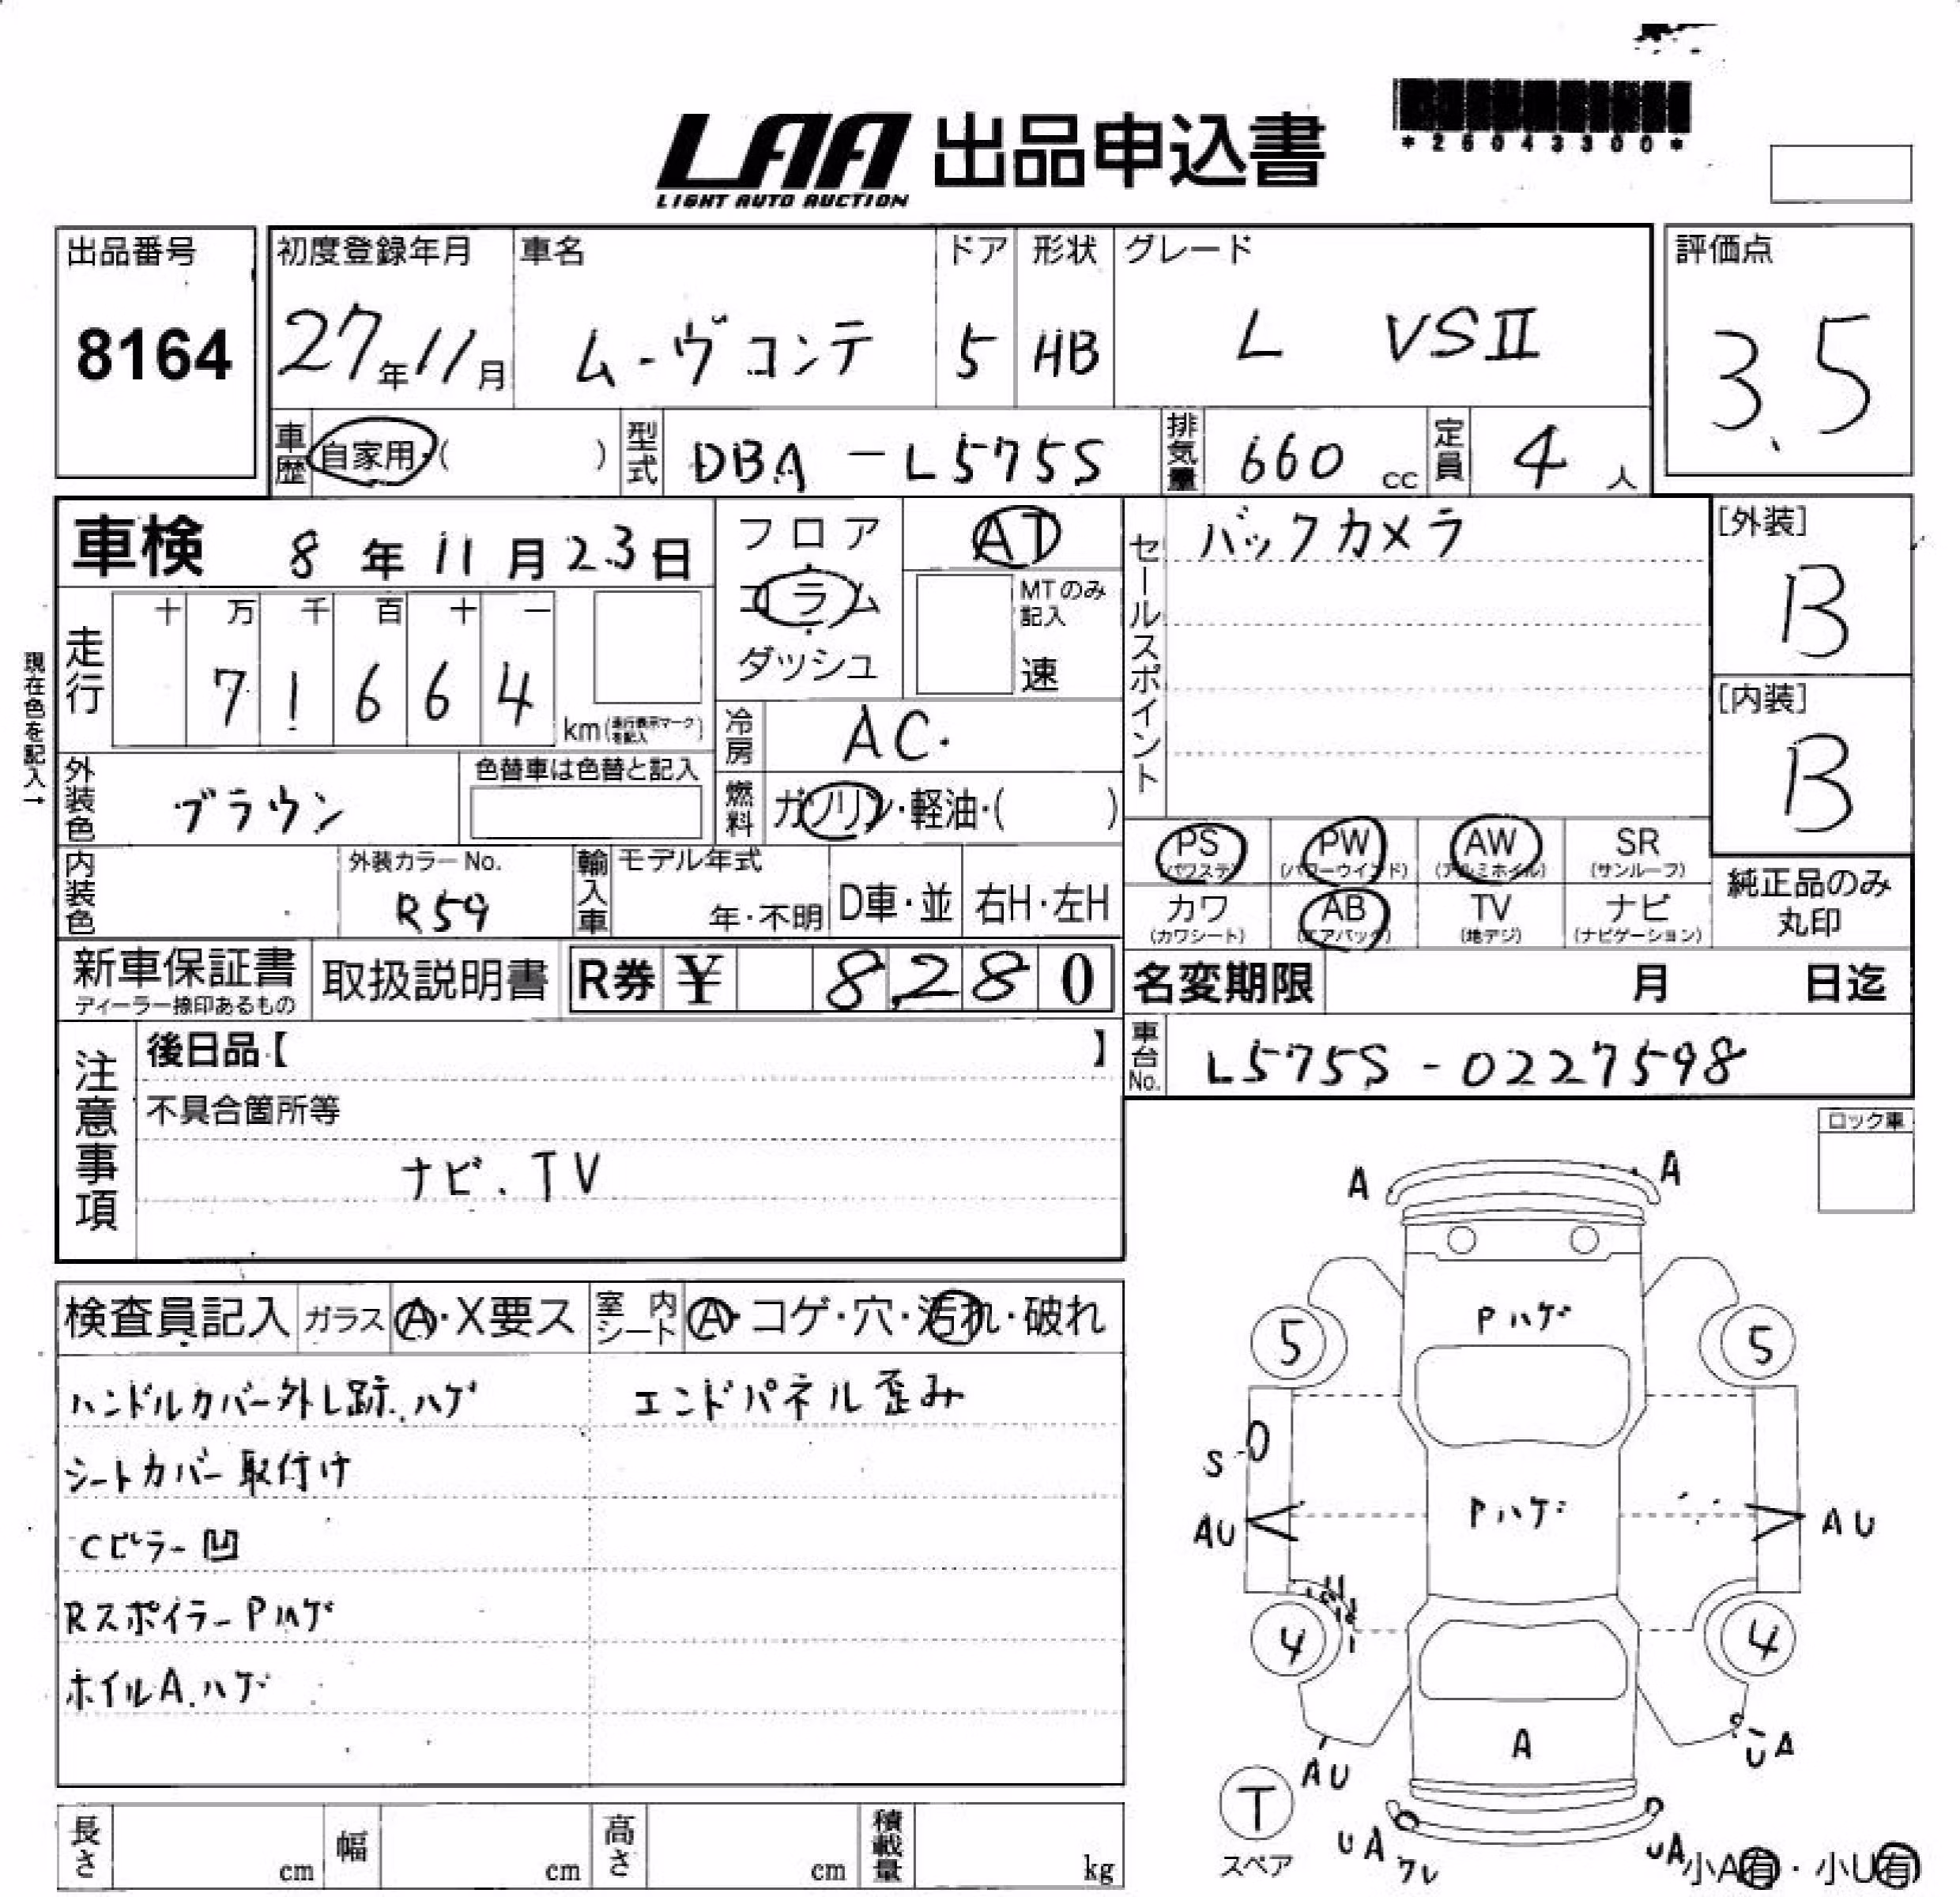 *26043300*
LAA 出品申込書
LIGHT AUTO AUCTION
出品番号
8164
初度登録年月 車名 ドア 形状 グレード
27年11月 ムーヴコンテ 5 HB L VSII
評価点
3.5
車歴 自家用・( ) 型式 DBA-L575S 排気量 660 cc 定員 4人
車検 8年11月23日
フロア
コラム
ダッシュ
AT
MTのみ記入
速
セールスポイント
バックカメラ
[外装]
B
[内装]
B
現在色を記入→
走行 十 万 千 百 十 一
7 1 6 6 4 km(走行表示マークを記入)
冷房 AC.
外装色 ブラウン 色替車は色替と記入
燃料 ガソリン・軽油・( )
PS (パワステ) PW (パワーウインド) AW (アルミホイル) SR (サンルーフ)
カワ (カワシート) AB (エアバック) TV (地デジ) ナビ (ナビゲーション)
純正品のみ
丸印
内装色 外装カラーNo. R59 輸入車 モデル年式 年・不明 D車・並 右H・左H
新車保証書 ディーラー捺印あるもの 取扱説明書 R券 ¥ 8,280
名変期限 月 日迄
車台No. L575S-0227598
注意事項
後日品【 】
不具合箇所等
ナビ.TV
ロック車
検査員記入 ガラス A・X要ス 室内シート A・コゲ・穴・汚れ・破れ
ハンドルカバー外し跡.ハゲ エンドパネル歪み
シートカバー取付け
Cピラー凹
RスポイラーPハゲ
ホイルA.ハゲ
A A
Pハゲ
5 5
S
Pハゲ
AU AU
4 4
A
AU UA
T
スペア
UA ワレ UA
小A有・小U有
長さ cm 幅 cm 高さ cm 積載量 kg